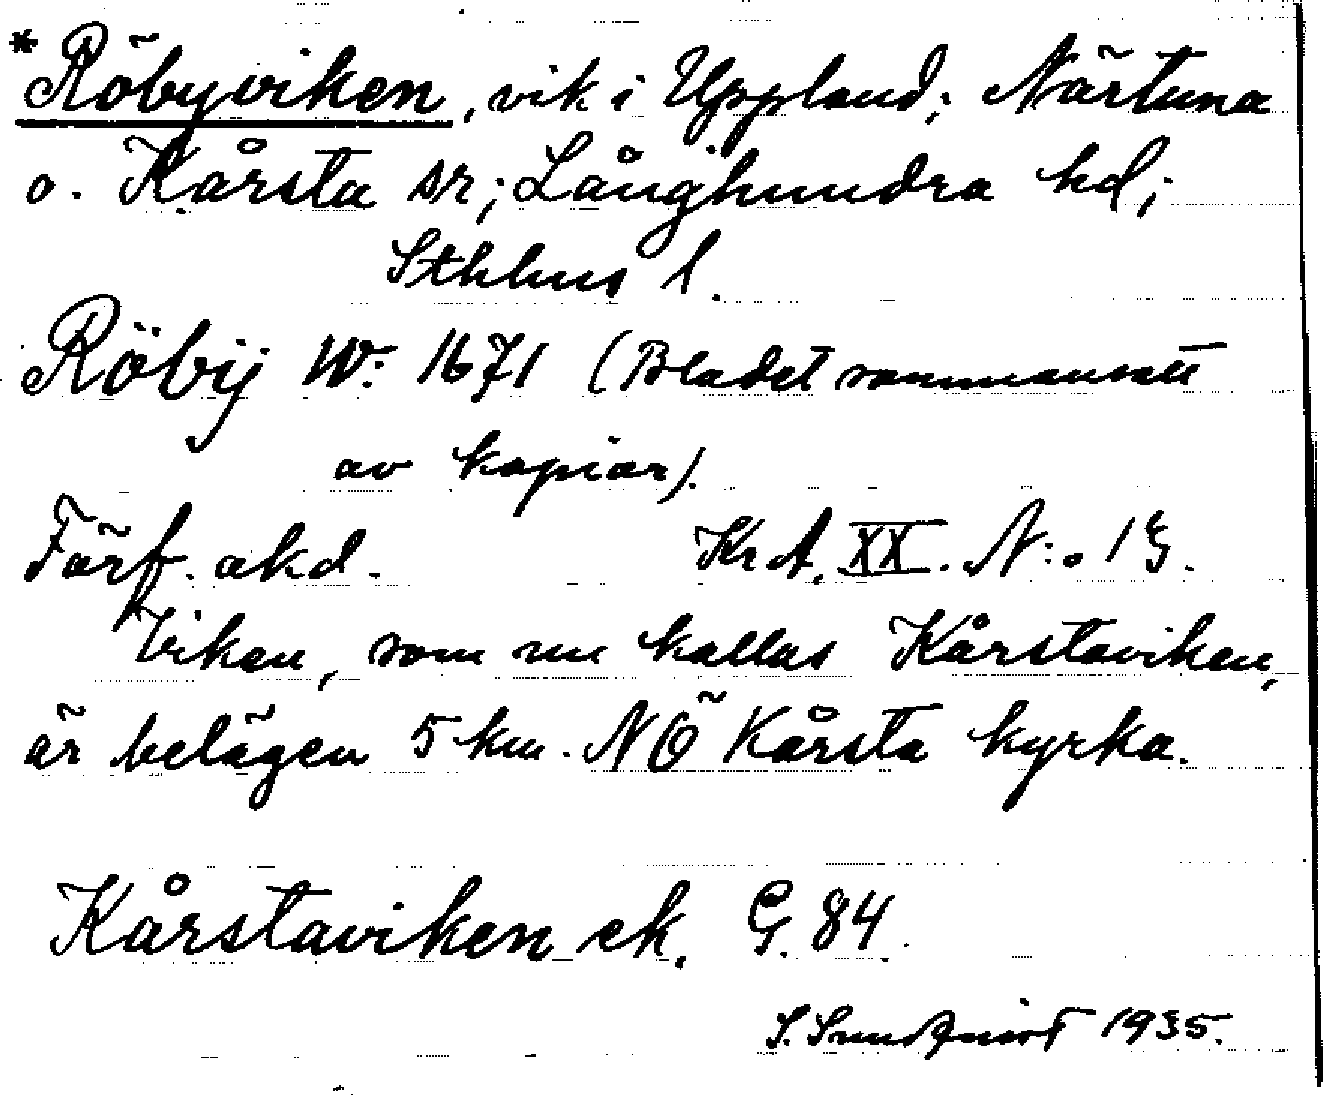 *Röbyviken, vik i Uppland; Närtuna
o. Kårsta sr; Långhundra hd;
Sthlms l.
Röbij W: 1671 (Bladet sammansatt
av kopior).
Förf. akd. Krt. XX. N:o 13.
Viken, som nu kallas Kårstaviken,
är belägen 5 km. NÖ Kårsta kyrka.
Kårstaviken ek. G. 84.
S. Sundqvist 1935.